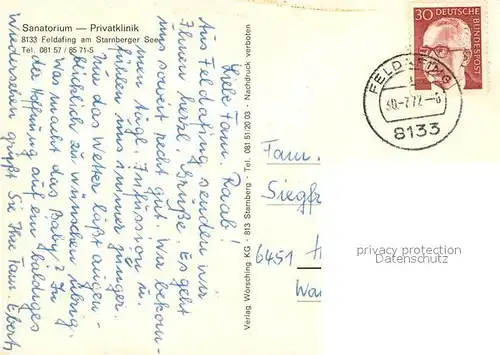 Sanatorium — Privatklinik
8133 Feldafing am Starnberger See
Tel. 081 57 / 85 71-5
Liebe Fam. Raab!
Aus Feldafing senden wir
Ihnen herzl. Grüße. Es geht
uns soweit recht gut. Wir bekom-
men tägl. Infusion u.
fühlen uns immer jünger.
Nur das Wetter läßt augen-
blicklich zu wünschen übrig.
Was macht das Baby? In
der Hoffnung auf ein baldiges
Wiedersehen grüßt Sie Ihre Fam. Ebert
Verlag Wörsching KG · 813 Starnberg · Tel. 081 51/20 03 · Nachdruck verboten
30 DEUTSCHE
BUNDESPOST
FELDAFING
30.-7.72.-8
8133
Fam.
Siegfr
6451
privacy protection
Datenschutz